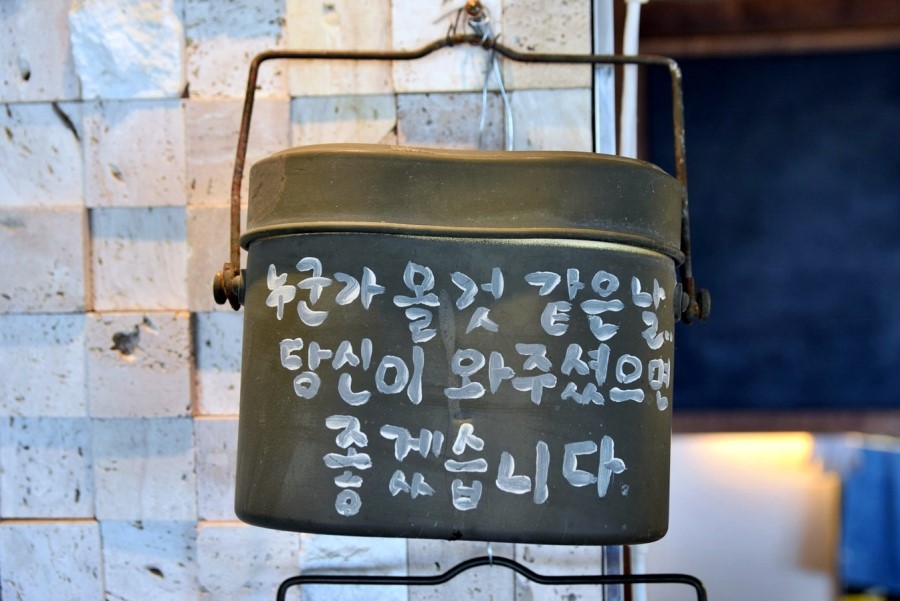 누군가 올것 같은날..
당신이 와주셨으면
좋겠습니다.